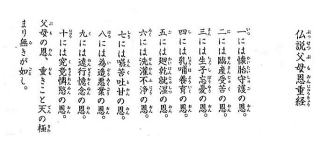 仏説父母恩重経
一には懐胎守護の恩。
二には臨産受苦の恩。
三には生子忘憂の恩。
四には乳哺養育の恩。
五には廻乾就湿の恩。
六には洗灌不浄の恩。
七には嚥苦吐甘の恩。
八には為造悪業の恩。
九には遠行憶念の恩。
十には究竟憐愍の恩。
父母の恩、重きこと天の極
まり無きが如し。